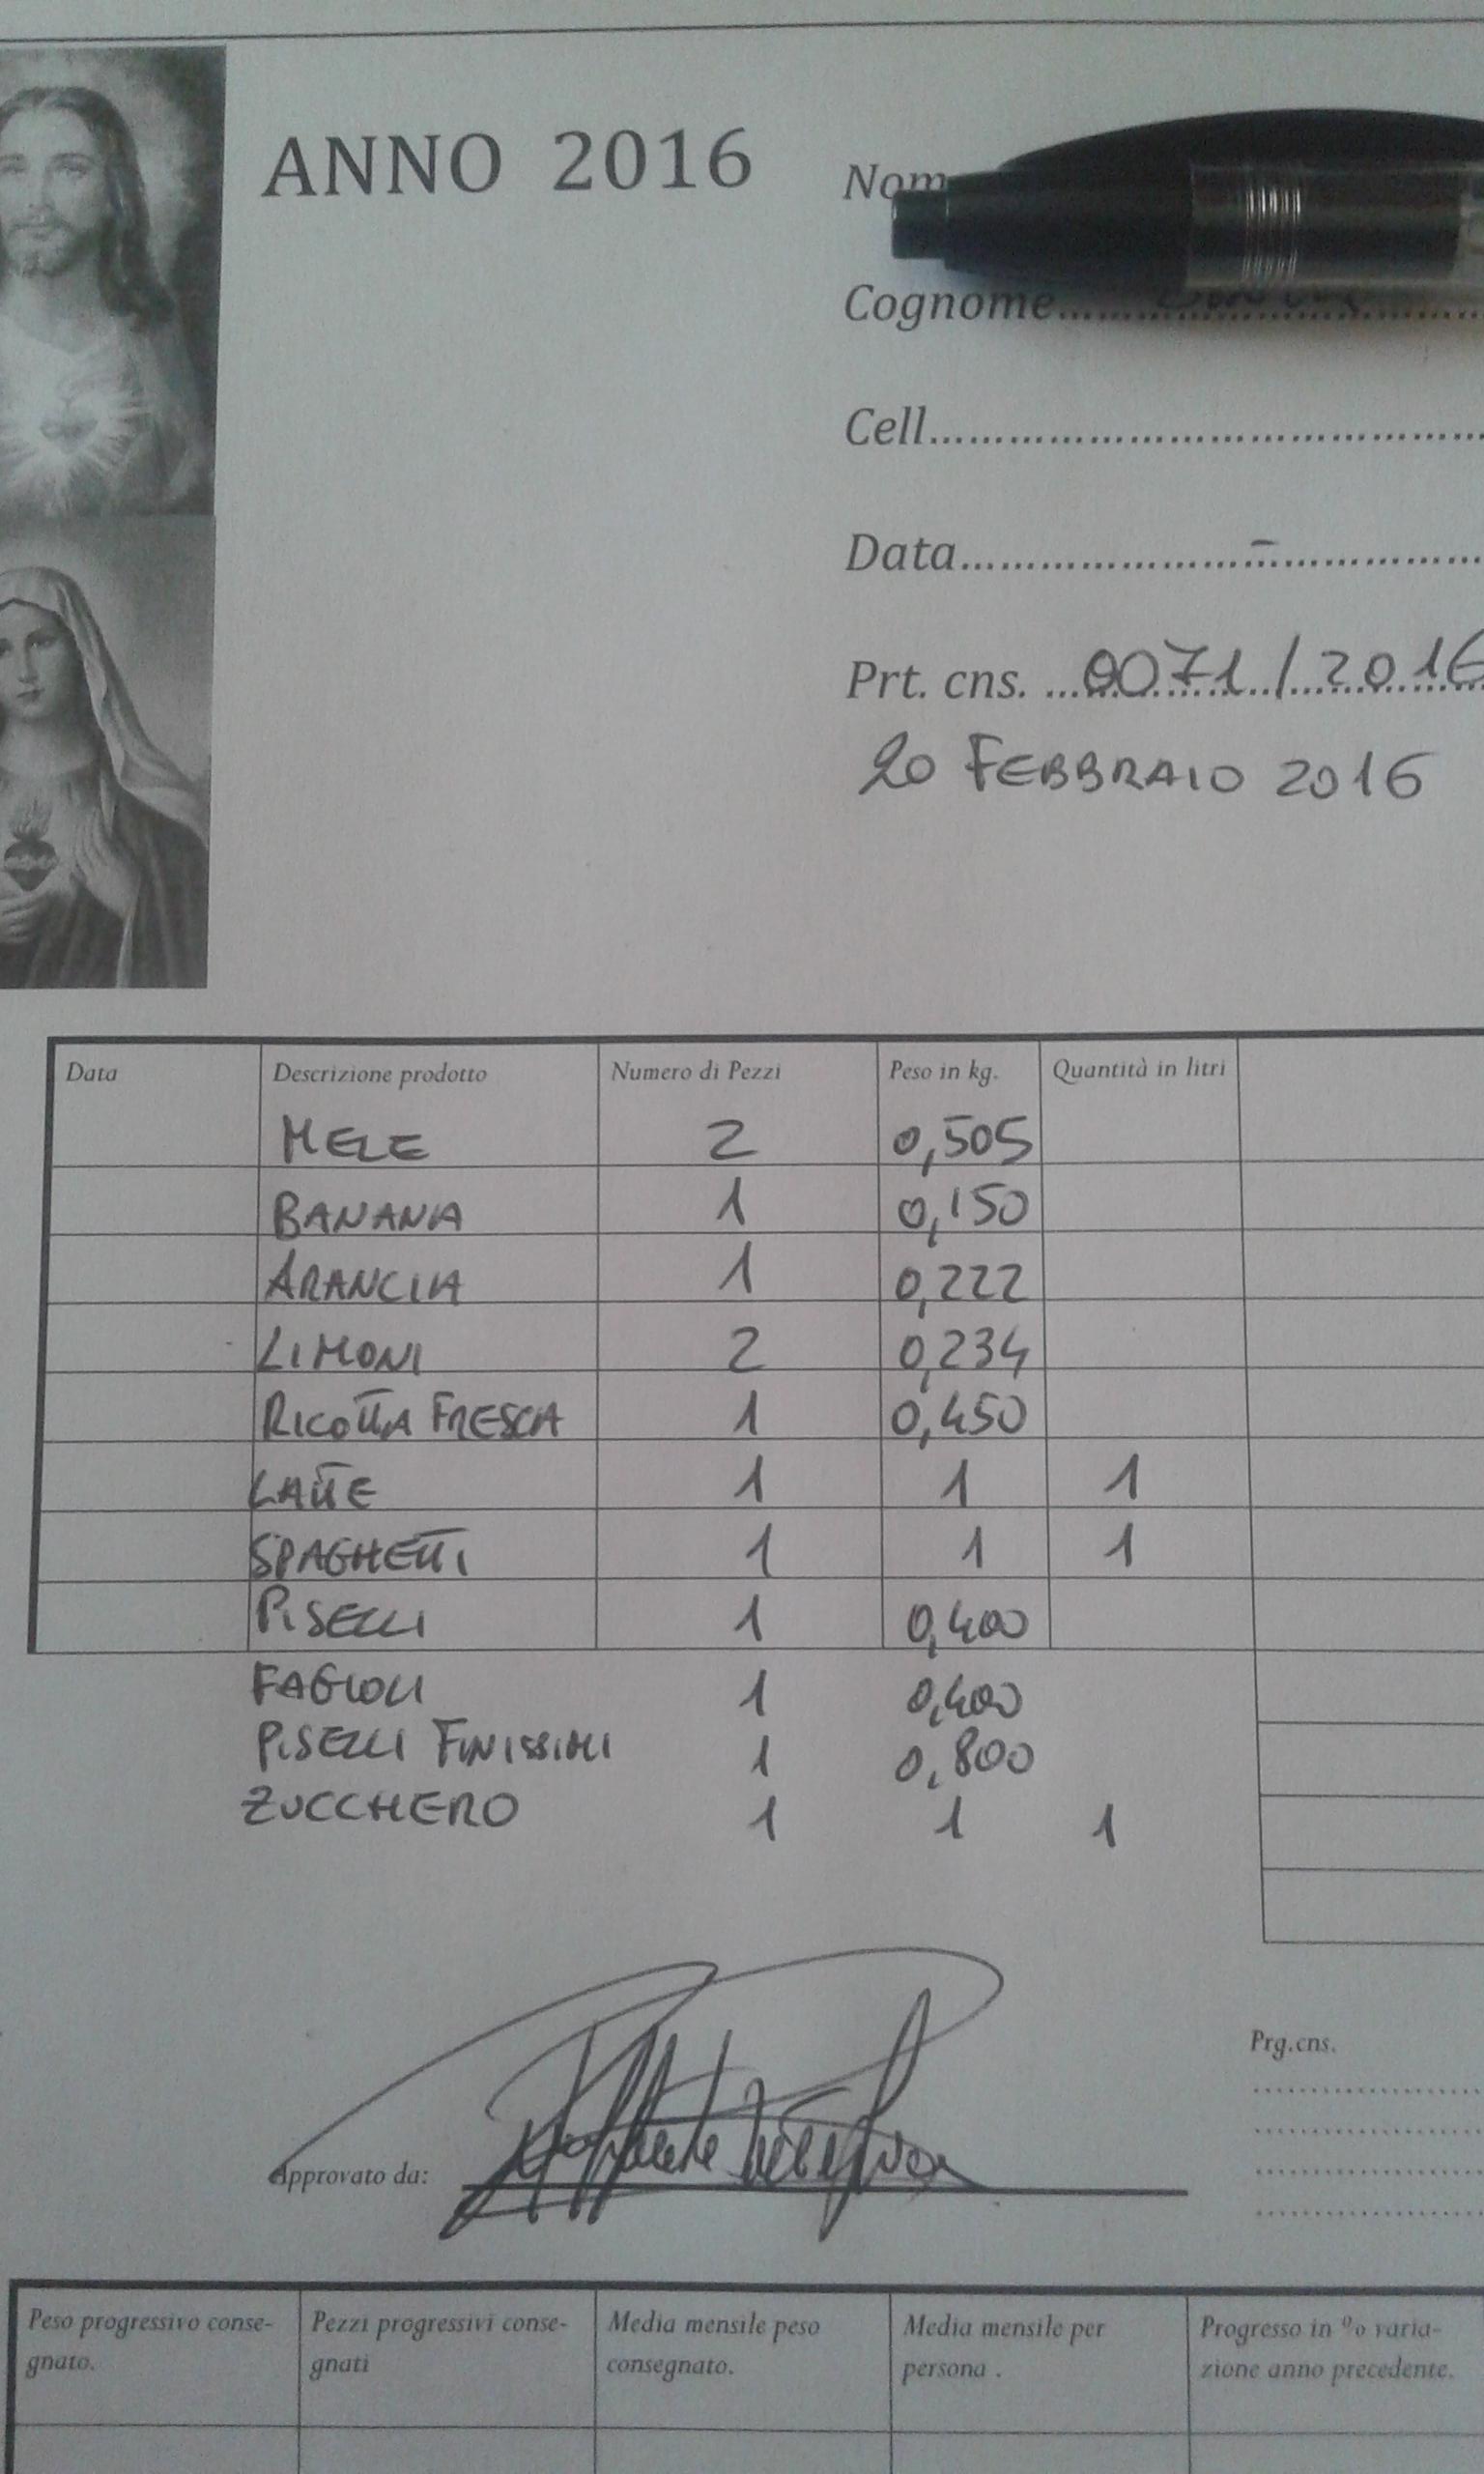 ANNO 2016
Nom
Cognome
Cell
Data
Prt. cns. 0071/2016
20 FEBBRAIO 2016
Data Descrizione prodotto Numero di Pezzi Peso in kg. Quantità in litri
MELE 2 0,505
BANANA 1 0,150
ARANCIA 1 0,222
LIMONI 2 0,234
RICOTTA FRESCA 1 0,450
LATTE 1 1 1
SPAGHETTI 1 1 1
PISELLI 1 0,400
FAGIOLI 1 0,400
PISELLI FINISSIMI 1 0,800
ZUCCHERO 1 1 1
Prg.cns.
Approvato da:
Peso progressivo conse- Pezzi progressivi conse- Media mensile peso Media mensile per Progresso in % varia-
gnato. gnati consegnato. persona . zione anno precedente.